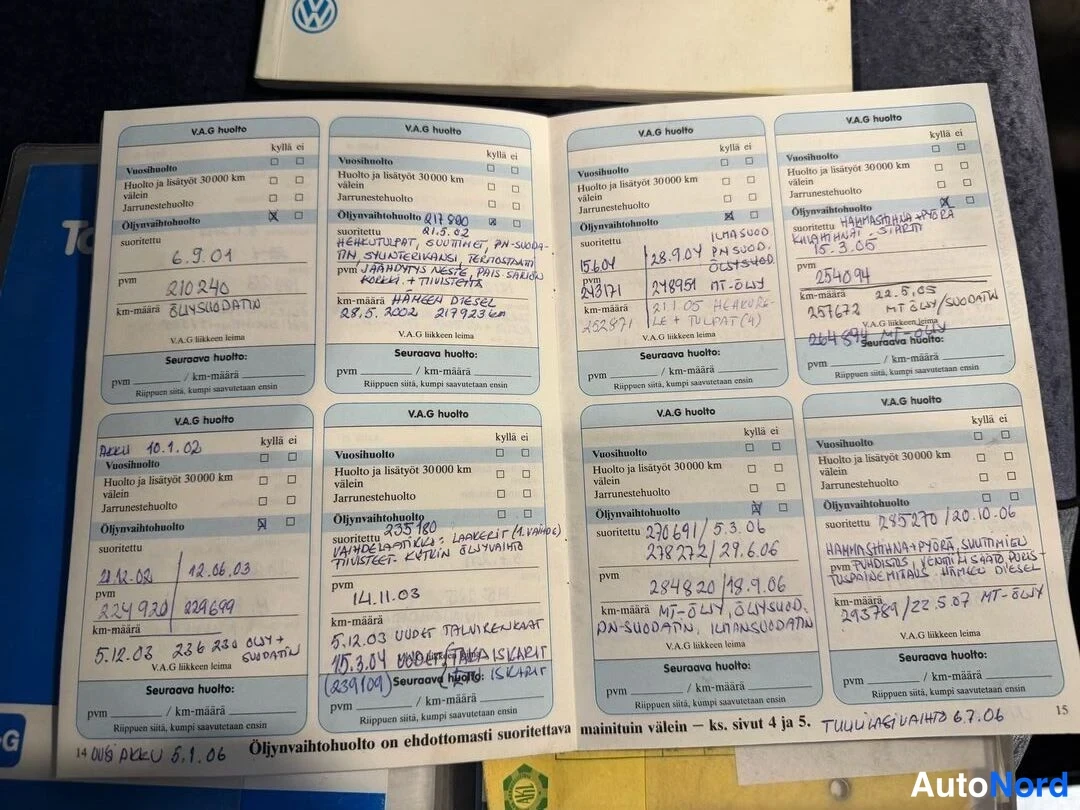 V.A.G huolto
kyllä ei
Vuosihuolto
Huolto ja lisätyöt 30 000 km
välein
Jarrunestehuolto
Öljynvaihtohuolto
suoritettu
6.9.01
pvm
210240
km-määrä ÖLJYSUODATIN
V.A.G liikkeen leima
Seuraava huolto:
pvm / km-määrä
Riippuen siitä, kumpi saavutetaan ensin
V.A.G huolto
kyllä ei
Vuosihuolto
Huolto ja lisätyöt 30 000 km
välein
Jarrunestehuolto
Öljynvaihtohuolto 217800
suoritettu 21.5.02
HEHKUTULPAT, SUUTTIMET, PN-SUODA-
TIN, SYLINTERIKANSI, TERMOSTAATTI
pvm JÄÄHDYTYSNESTE, PAIS.SÄILIÖN
KORKKI + TIIVISTEITÄ
km-määrä HÄMEEN DIESEL
28.5.2002 217923 km
V.A.G liikkeen leima
Seuraava huolto:
pvm / km-määrä
Riippuen siitä, kumpi saavutetaan ensin
V.A.G huolto
AKKU 10.1.02 kyllä ei
Vuosihuolto
Huolto ja lisätyöt 30 000 km
välein
Jarrunestehuolto
Öljynvaihtohuolto
suoritettu
12.02 / 12.06.03
pvm
224920 / 229699
km-määrä
5.12.03 236 230 ÖLJY +
SUODATIN
V.A.G liikkeen leima
Seuraava huolto:
pvm / km-määrä
Riippuen siitä, kumpi saavutetaan ensin
V.A.G huolto
kyllä ei
Vuosihuolto
Huolto ja lisätyöt 30 000 km
välein
Jarrunestehuolto
Öljynvaihtohuolto
suoritettu 235180
VAIHDELAATIKKO: LAAKERIT (1. VAIHDE)
TIIVISTEET KYTKIN ÖLJYVAIHTO
pvm
14.11.03
km-määrä
5.12.03 UUDET TALVIRENKAAT
15.3.04 UUDET ISKARIT
(239109) ISKARIT
Seuraava huolto:
pvm / km-määrä
Riippuen siitä, kumpi saavutetaan ensin
14 UUSI AKKU 5.1.06
V.A.G huolto
kyllä ei
Vuosihuolto
Huolto ja lisätyöt 30 000 km
välein
Jarrunestehuolto
Öljynvaihtohuolto
suoritettu ILMASUOD
15.6.04 / 28.9.04 PN SUOD.
pvm ÖLJYSUOD.
243171 248951 MT-ÖLJY
km-määrä 21.1.05 HEHKURE-
252871 LE + TULPAT (4)
V.A.G liikkeen leima
Seuraava huolto:
pvm / km-määrä
Riippuen siitä, kumpi saavutetaan ensin
V.A.G huolto
kyllä ei
Vuosihuolto
Huolto ja lisätyöt 30 000 km
välein
Jarrunestehuolto
Öljynvaihtohuolto
suoritettu HAMMASHIHNA + PYÖRÄ
KIILAHIHNA
15.3.05
pvm
254094
km-määrä 22.5.05
257672 MT ÖLJY/SUODATIN
V.A.G liikkeen leima
264894 MT-ÖLJY
Seuraava huolto:
pvm / km-määrä
Riippuen siitä, kumpi saavutetaan ensin
V.A.G huolto
kyllä ei
Vuosihuolto
Huolto ja lisätyöt 30 000 km
välein
Jarrunestehuolto
Öljynvaihtohuolto
suoritettu 270691 / 5.3.06
278272 / 29.6.06
pvm
284820 / 18.9.06
km-määrä MT-ÖLJY, ÖLJYSUOD.
PN-SUODATIN, ILMANSUODATIN
V.A.G liikkeen leima
Seuraava huolto:
pvm / km-määrä
Riippuen siitä, kumpi saavutetaan ensin
V.A.G huolto
kyllä ei
Vuosihuolto
Huolto ja lisätyöt 30 000 km
välein
Jarrunestehuolto
Öljynvaihtohuolto
suoritettu 285270 / 20.10.06
HAMMASHIHNA + PYÖRÄ, SUUTTIMIEN
pvm PUHDISTUS, VENTTIILISÄÄTÖ, PURIS-
TUSPAINEMITTAUS HÄMEEN DIESEL
km-määrä
293789 / 22.5.07 MT-ÖLJY
V.A.G liikkeen leima
Seuraava huolto:
pvm / km-määrä
Riippuen siitä, kumpi saavutetaan ensin
15
Öljynvaihtohuolto on ehdottomasti suoritettava mainituin välein – ks. sivut 4 ja 5. TUULILASIVAIHTO 6.7.06
AutoNord